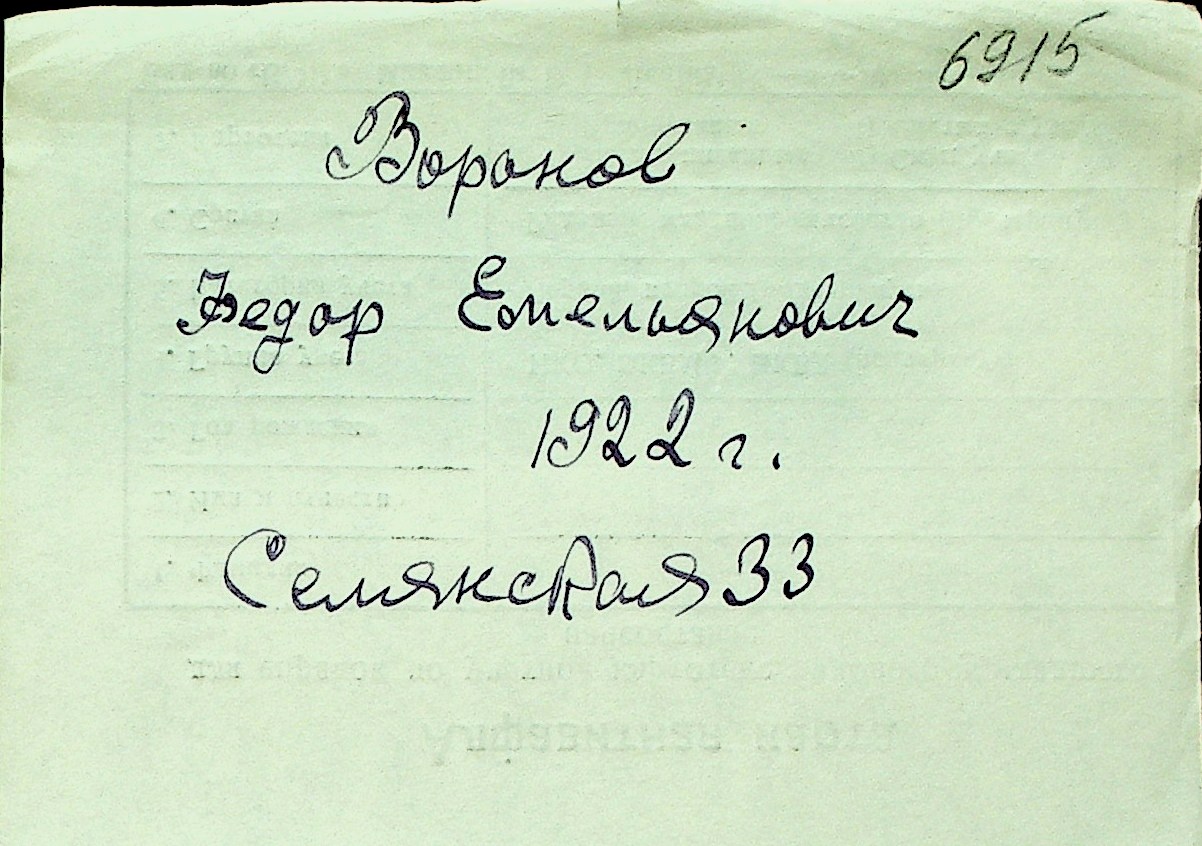 6915
Воронов
Федор Емельянович
1922 г.
Семянская 33